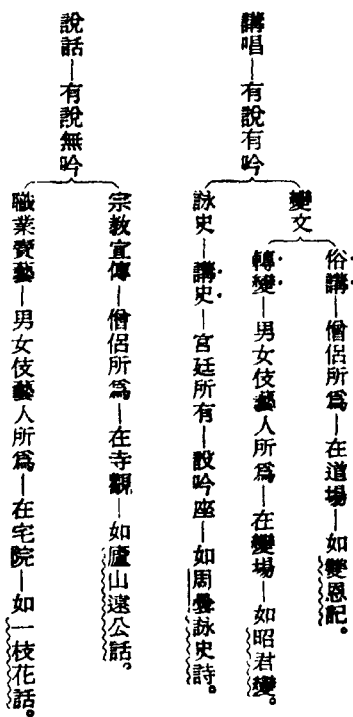 講唱—有說有吟
變文
俗講—僧侶所爲—在道場—如雙恩記。
轉變—男女伎藝人所爲—在變場—如昭君變。
詠史—講史—宮廷所有—設吟座—如周曇詠史詩。
說話—有說無吟
宗教宣傳—僧侶所爲—在寺觀—如廬山遠公話，
職業賣藝—男女伎藝人所爲—在宅院—如一枝花話。